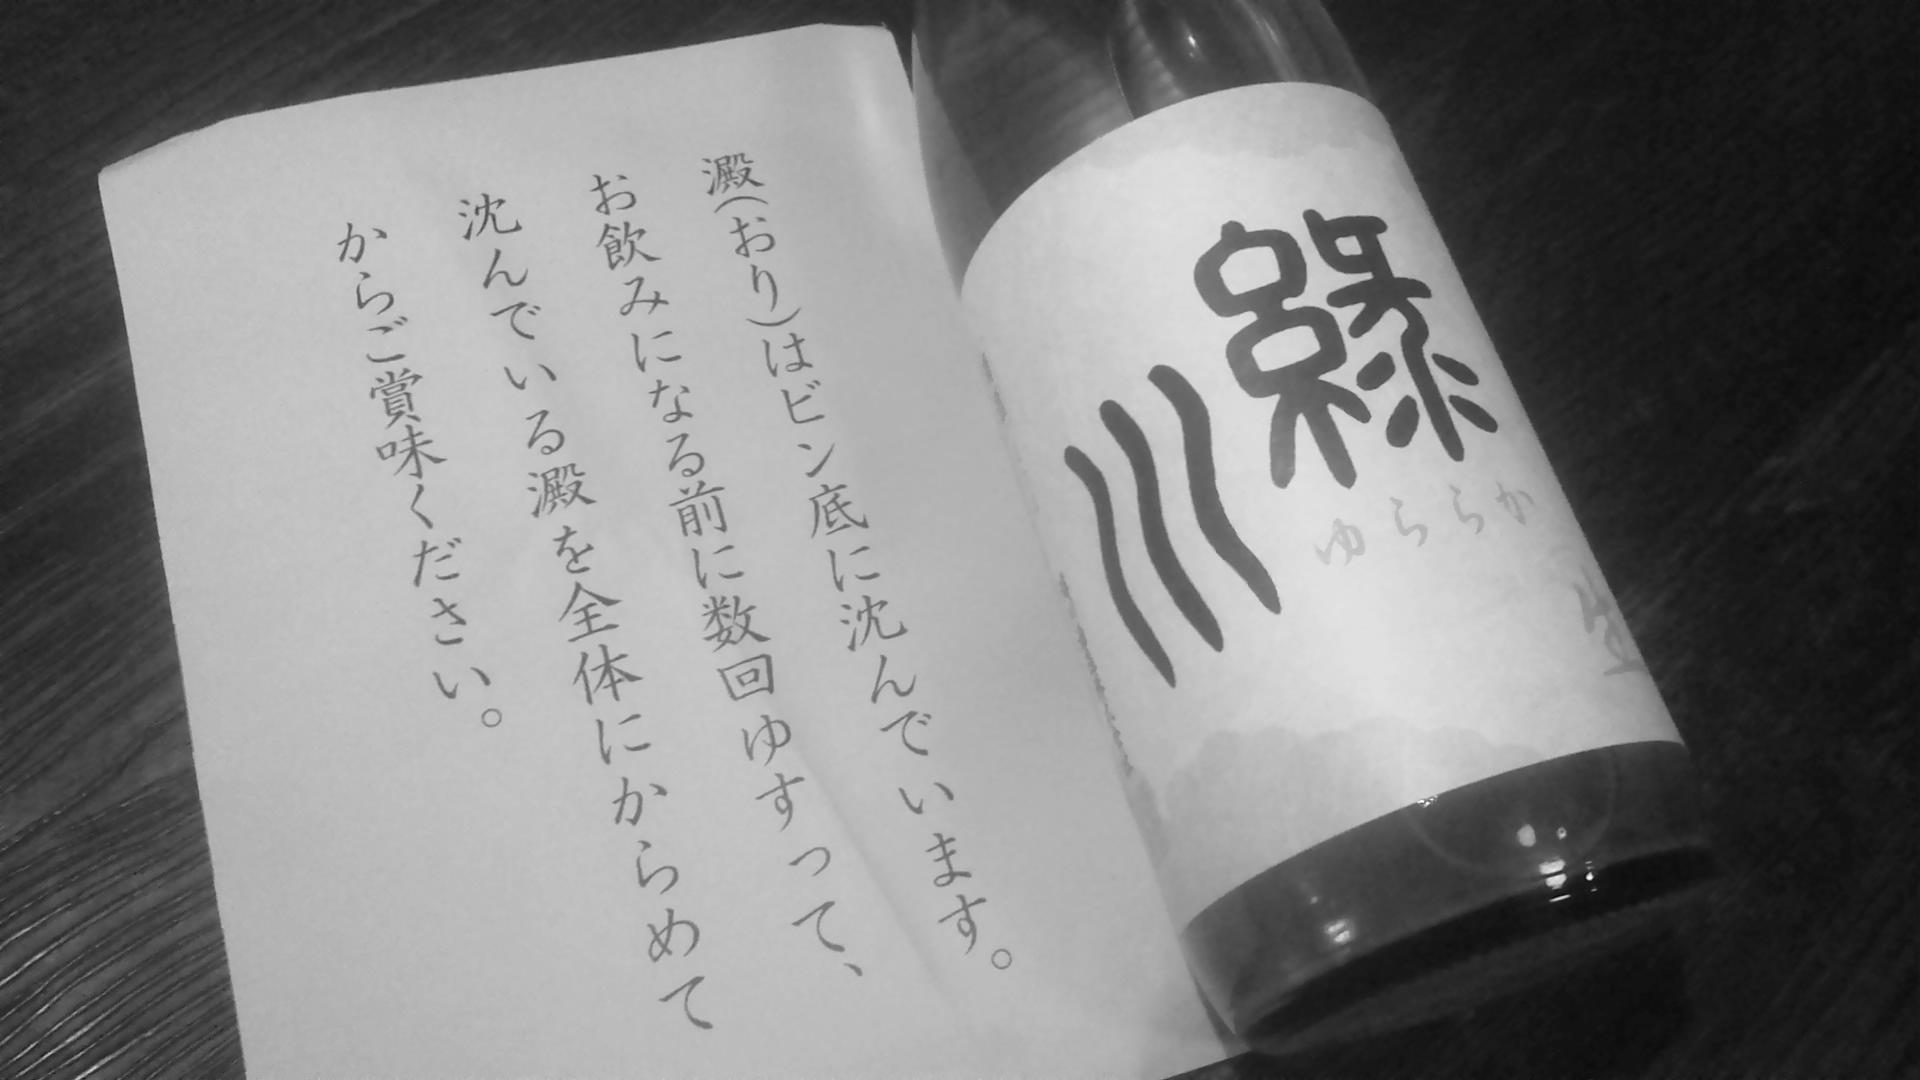 澱(おり)はビン底に沈んでいます。
お飲みになる前に数回ゆすって、
沈んでいる澱を全体にからめて
からご賞味ください。
緑
川
ゆららか
生